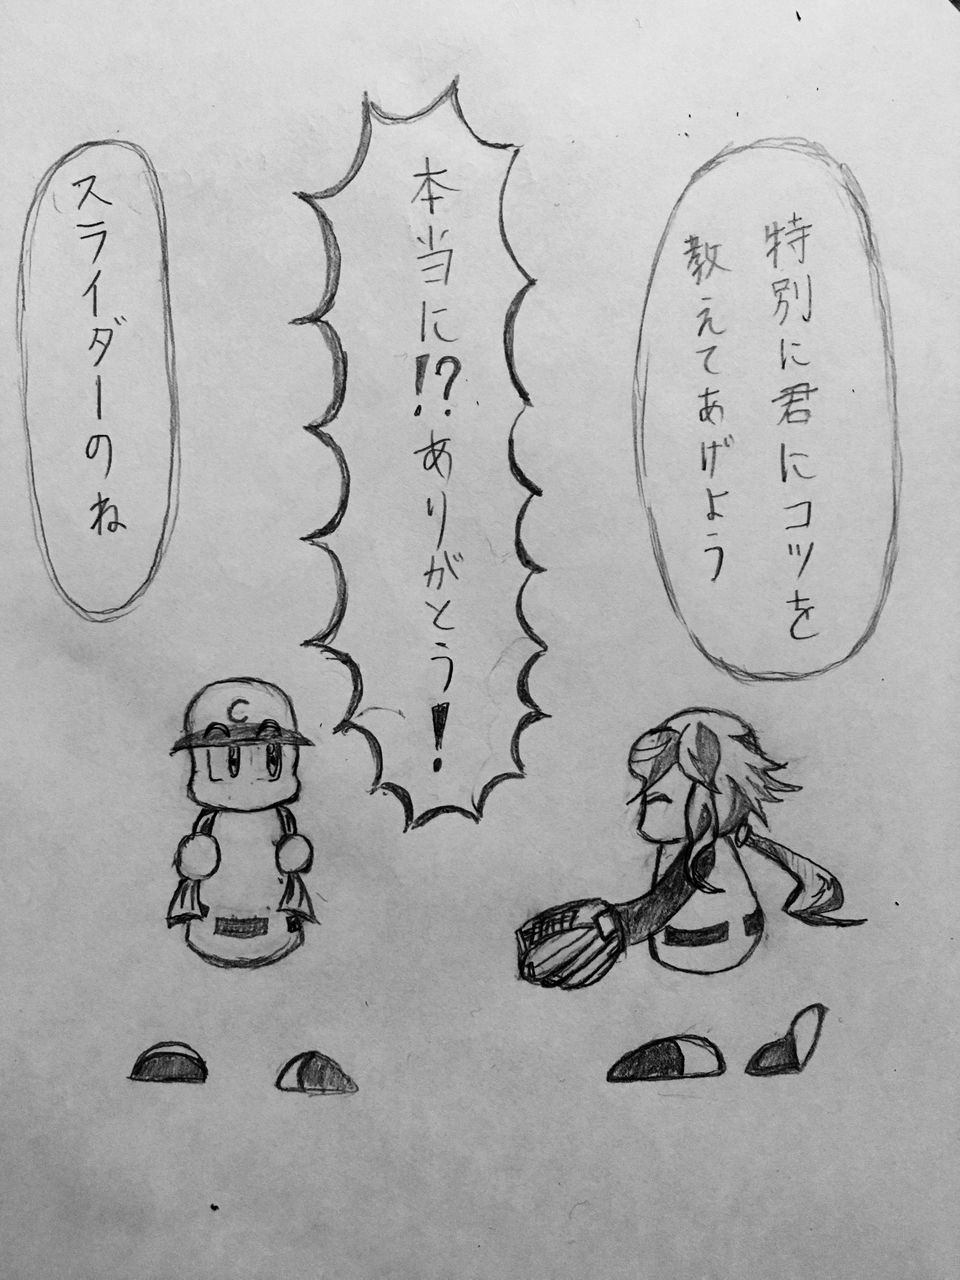 特別に君にコツを
教えてあげよう
本当に!?ありがとう!
スライダーのね
C